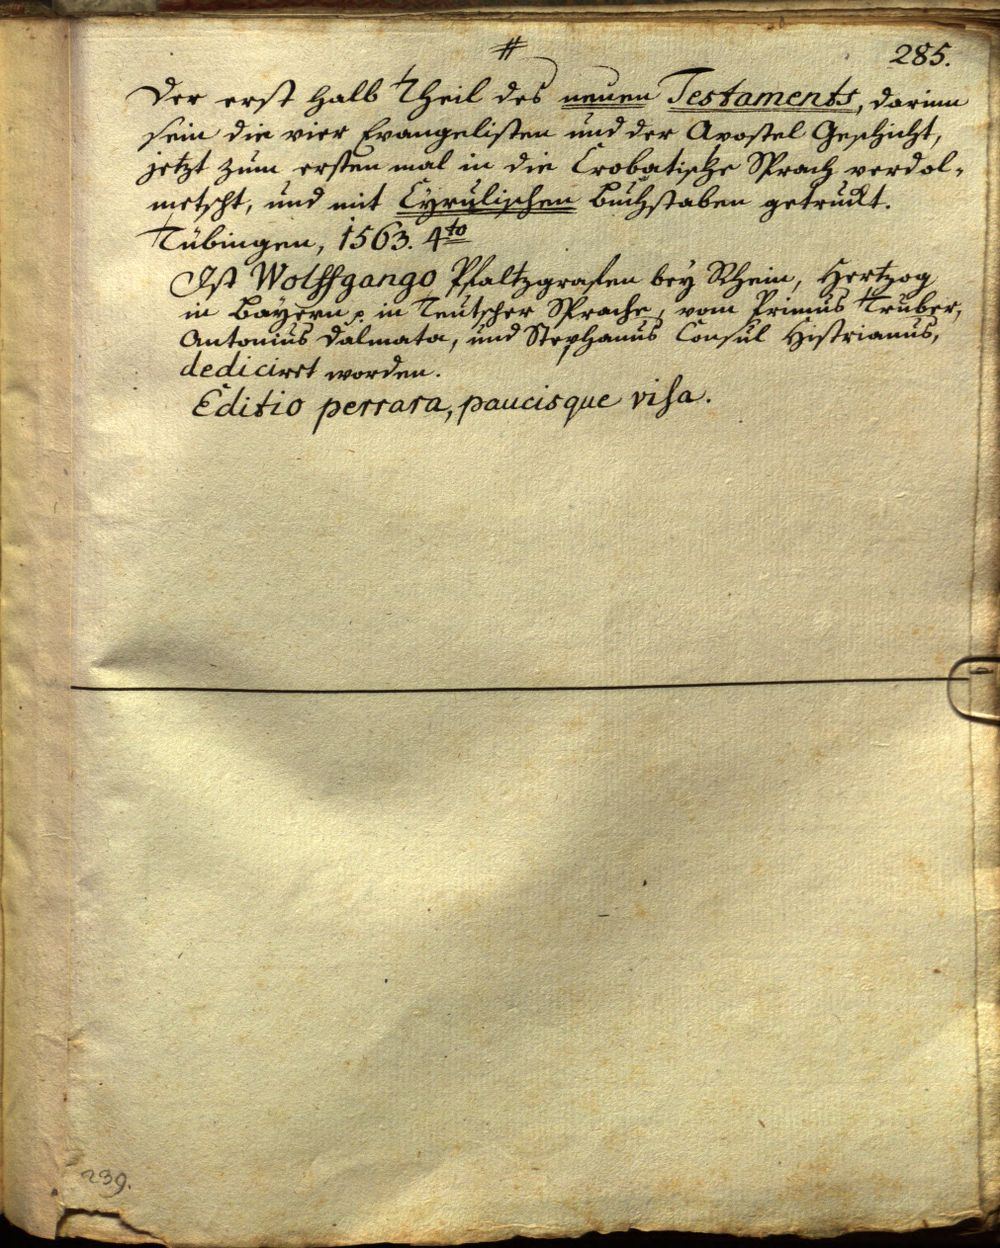 #
285.
Der erst halb Theil des neuen Testaments, darinn
sein die vier Evangelisten und der Apostel Geschicht,
jetzt zum ersten mal in die Crobatische Sprach verdol-
metscht, und mit Cyrulischen Buchstaben getruckt.
Tübingen, 1563. 4to
Ist Wolffgango Pfaltzgrafen bey Rhein, Hertzog
in Bayern in Teutscher Sprache, vom Primus Truber,
Antonius Dalmata, und Stephanus Consul Histrianus,
dedicirt worden.
Editio perrara, paucisque visa.
239.